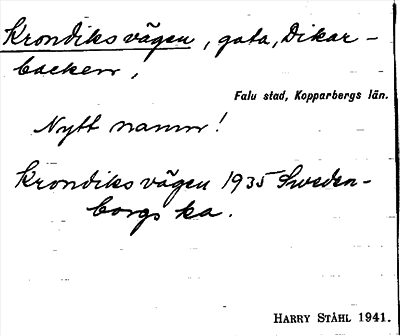 Krondiksvägen, gata, Dikar-
backen,
Falu stad, Kopparbergs län.
Nytt namn!
Krondiksvägen 1935 Sweden-
borgs ka.
HARRY STÅHL 1941.